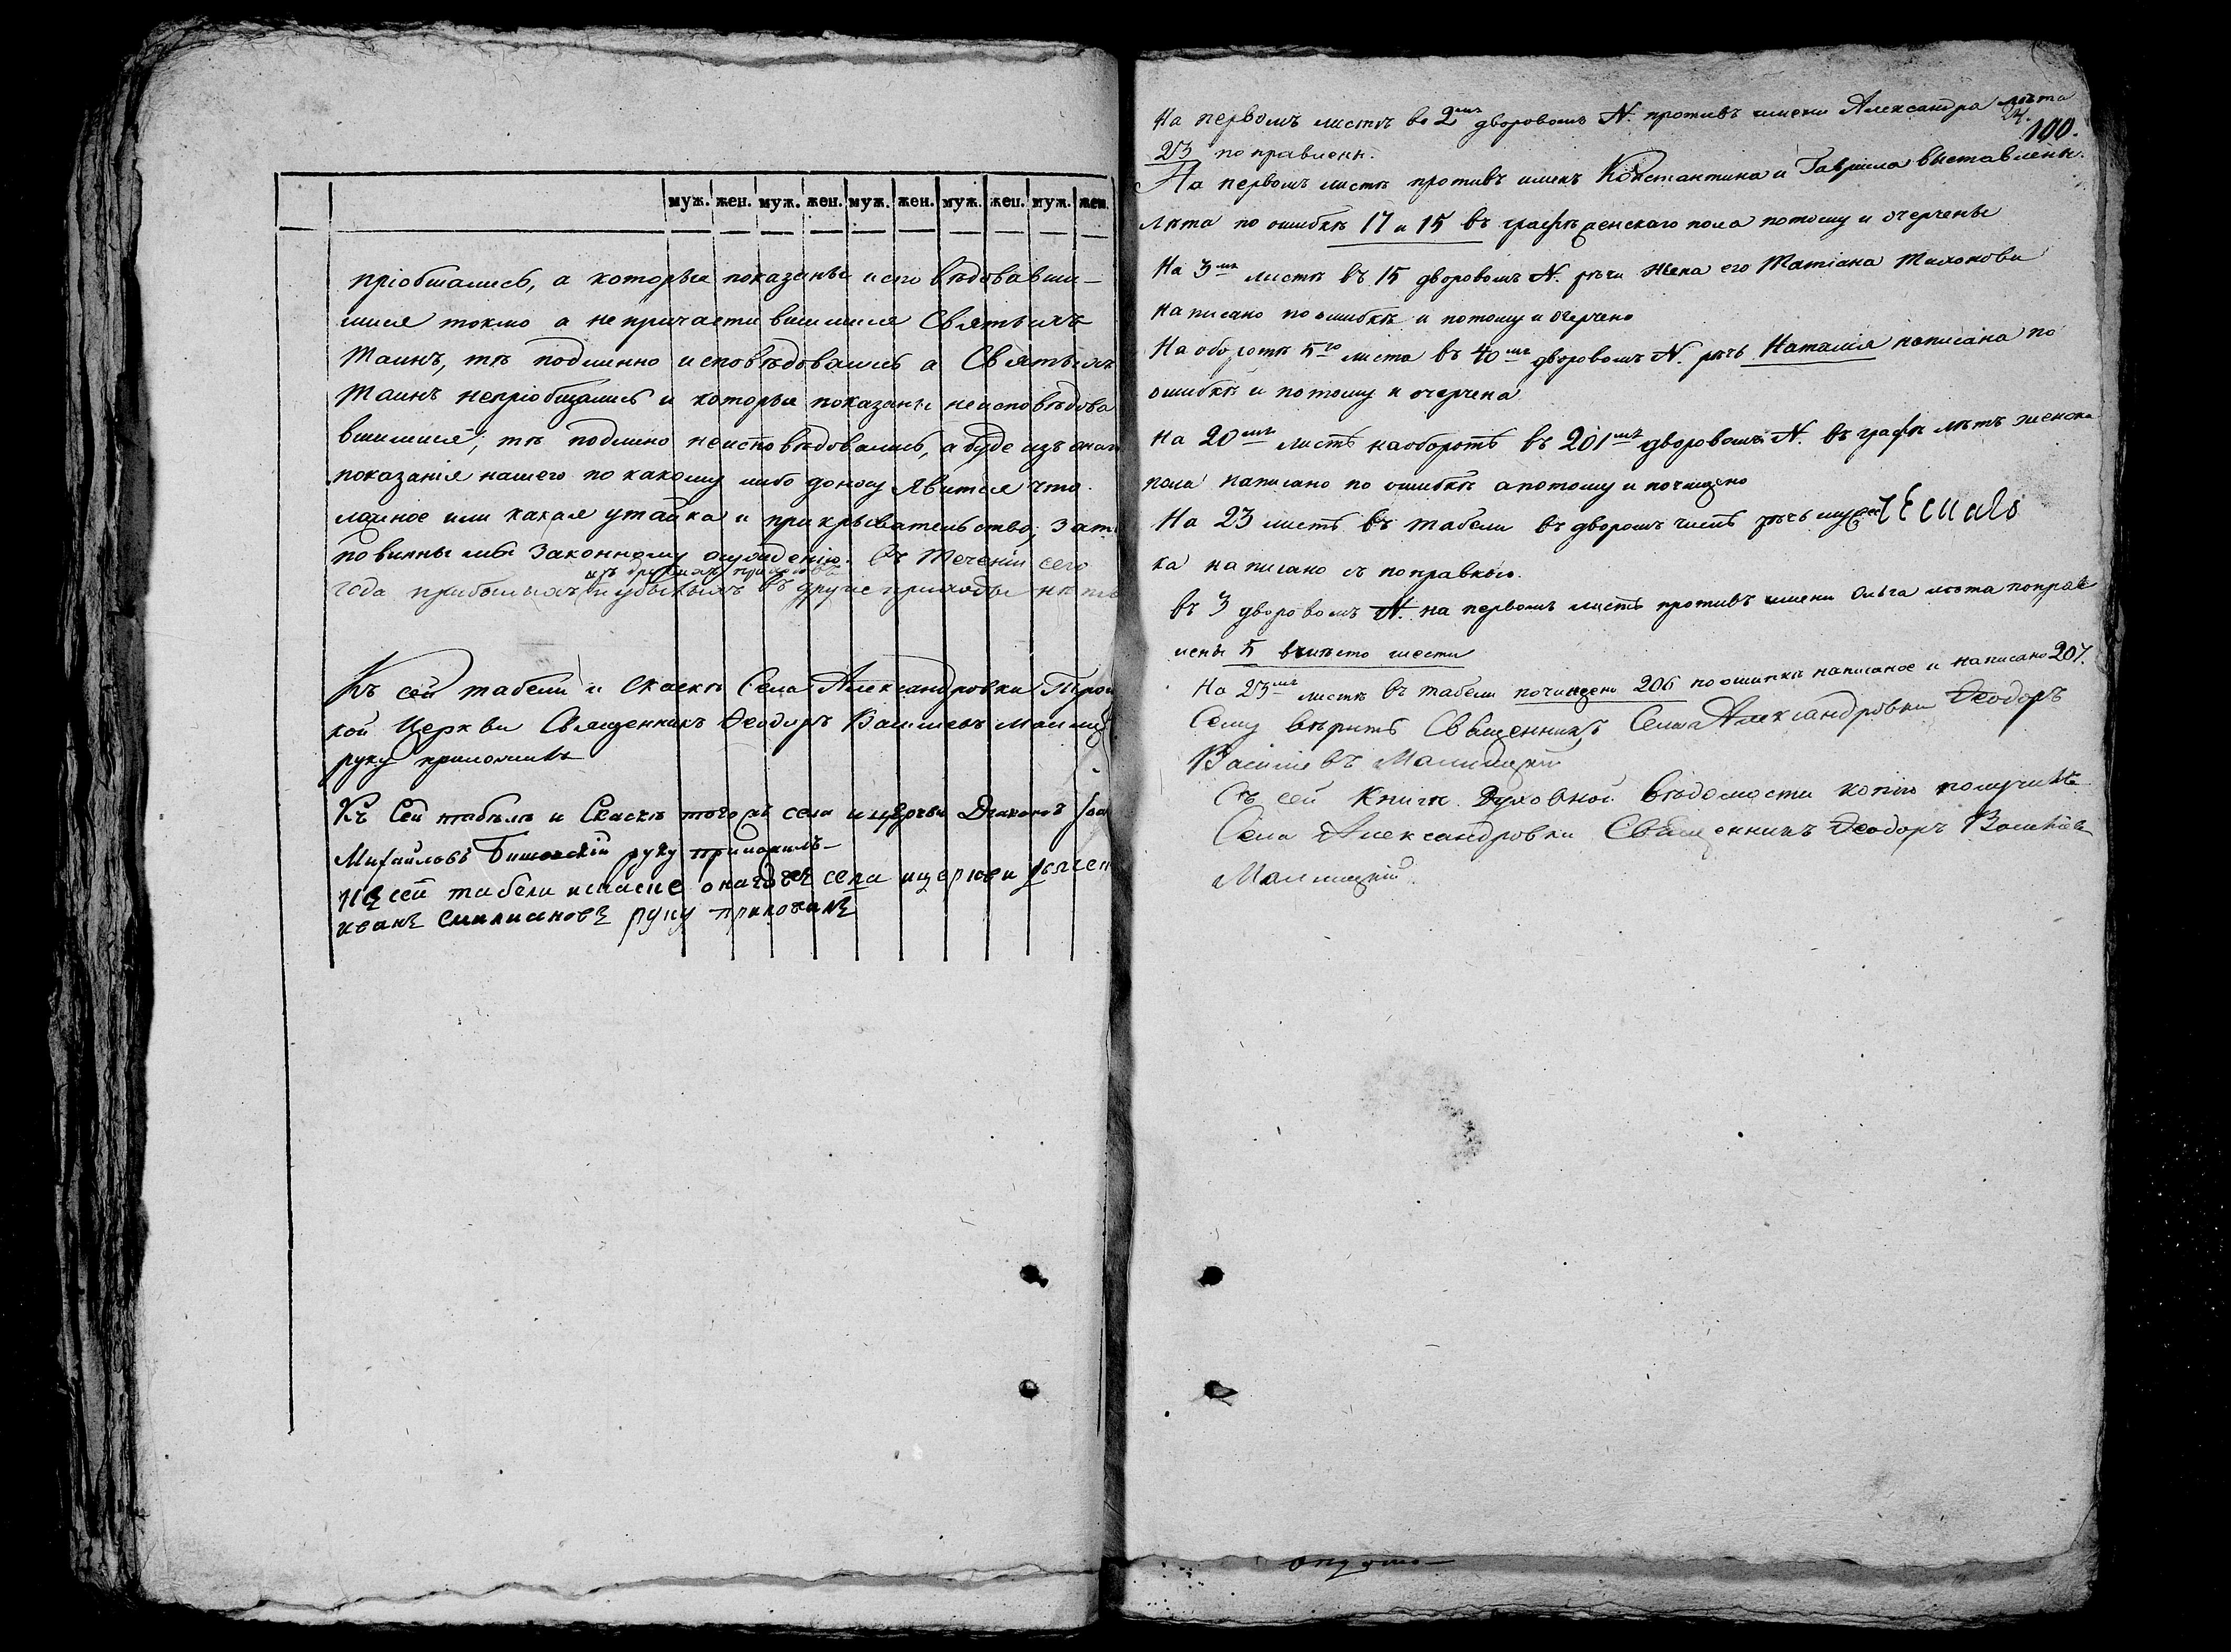 муж. жен. муж. жен. муж. жен. муж. жен. муж. жен.
пріобщались, а которые показаны исповѣдовавши-
мися токмо а непричастившимися Святыхъ
Таинъ, тѣ подлинно исповѣдовались а Святыхъ
Таинъ непріобщались и которые показаны неисповѣдова
вшимися, тѣ подлинно неисповѣдовались, а буде изъ онаго
показанія нашего по какому либо доносу явится что
ложное или какая утайка и прикрывательство, за то
повинны мы законному осужденію. Въ теченіи сего
изъ другихъ приходовъ
года прибылыхъ и убылыхъ въ другіе приходы нѣтъ
Къ сей табели и скаскѣ Села Александровки Трои
кой Церкви Священникъ Ѳеодоръ Васильевъ
руку приложилъ
Къ Сей табелѣ и Скаскѣ тогожъ села и церкви Діаконъ
Михайловъ руку приложилъ
села и церкви
иванъ емилиановъ руку приложилъ
На первомъ листѣ во 2мъ дворовомъ N. противъ имени Александра лѣта
24.
100.
23 поправлены.
На первомъ листѣ противъ именъ Константина и Гавріила выставлены
лѣта по ошибкѣ 17 и 15 въ графѣ женскаго пола потому и очерчены
На 3мъ листѣ въ 15 дворовомъ N. рѣчи Жена его Татіана Тихонови
написано по ошибкѣ и потому и очерчено
На оборотѣ 5го листа въ 40мъ дворовомъ N. рѣчь Наталія написана по
ошибкѣ и потому и очерчена
На 20мъ листѣ на оборотѣ въ 201мъ дворовомъ N. въ графѣ лѣтъ женска
пола написано по ошибкѣ а потому и почищено
На 23 листѣ въ табели въ дворомъ числѣ рѣчь
ка написано съ поправкою.
въ 3 дворовомъ N. на первомъ листѣ противъ имени Ольга лѣта поправ
лены 5 вмѣсто шести
На 23мъ листѣ въ табели почищено 206 по ошибкѣ написаное и написано 207.
Сему вѣритъ Священникъ Села Александровки Ѳеодоръ
Васильевъ
Съ сей Книги Духовной вѣдомости копію получилъ
Села Александровки Священникъ Ѳеодоръ Васильевъ